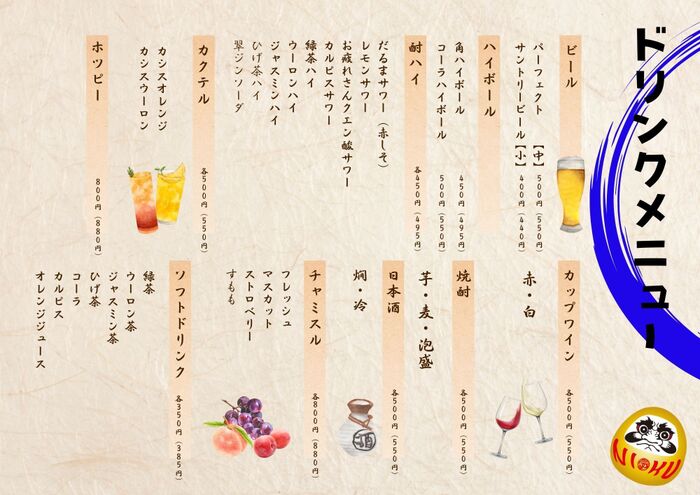 ドリンクメニュー
ビール
パーフェクト 【中】 500円 (550円)
サントリービール 【小】 400円 (440円)
ハイボール
角ハイボール 450円 (495円)
コーラハイボール 500円 (550円)
酎ハイ 各450円 (495円)
だるまサワー (赤しそ)
レモンサワー
お疲れさんクエン酸サワー
カルピスサワー
緑茶ハイ
ウーロンハイ
ジャスミンハイ
ひげ茶ハイ
翠ジンソーダ
カクテル 各500円 (550円)
カシスオレンジ
カシスウーロン
ホッピー 800円 (880円)
カップワイン 各500円 (550円)
赤・白
焼酎 各500円 (550円)
芋・麦・泡盛
日本酒 各500円 (550円)
燗・冷
酒
チャミスル 各800円 (880円)
フレッシュ
マスカット
ストロベリー
すもも
ソフトドリンク 各350円 (385円)
緑茶
ウーロン茶
ジャスミン茶
ひげ茶
コーラ
カルピス
オレンジジュース